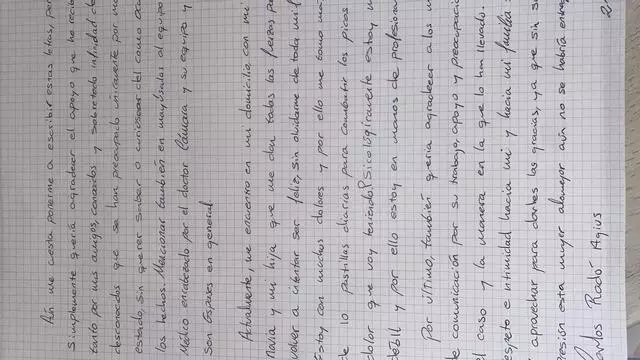 Aún me cuesta ponerme a escribir estas letras, por
Simplemente quería agradecer el apoyo que he recib
tanto por mis amigos, conocidos y sobretodo infinidad de
desconocidos que se han preocupado unicamente por mi
estado, sin querer saber o curiosear del como ocu
los hechos. Mencionar también en mayúsculas al equipo
Médico encabezado por el doctor Cámara y su equipo y
Son Espases en general
Actualmente, me encuentro en mi domicilio con mi
novia y mi hija que me dan todas las fuerzas po
volver a intentar ser feliz, sin olvidarme de toda mi f
Estoy con muchos dolores y por ello me tomo má
de 10 pastillas diarias para combatir los picos
dolor que voy teniendo. Sicológicamente estoy m
debil y por ello estoy en manos de profesiona
Por último, también quería agradecer a los m
de comunicación por su trabajo, apoyo y preocupació
el caso y la manera en la que lo han llevado.
espeto e intimidad hacia mi y hacia mi familia
aprovechar para darles las gracias, ya que sin su
esión esta mujer alomejor aún no se habría entreg
arlos Radó Agius